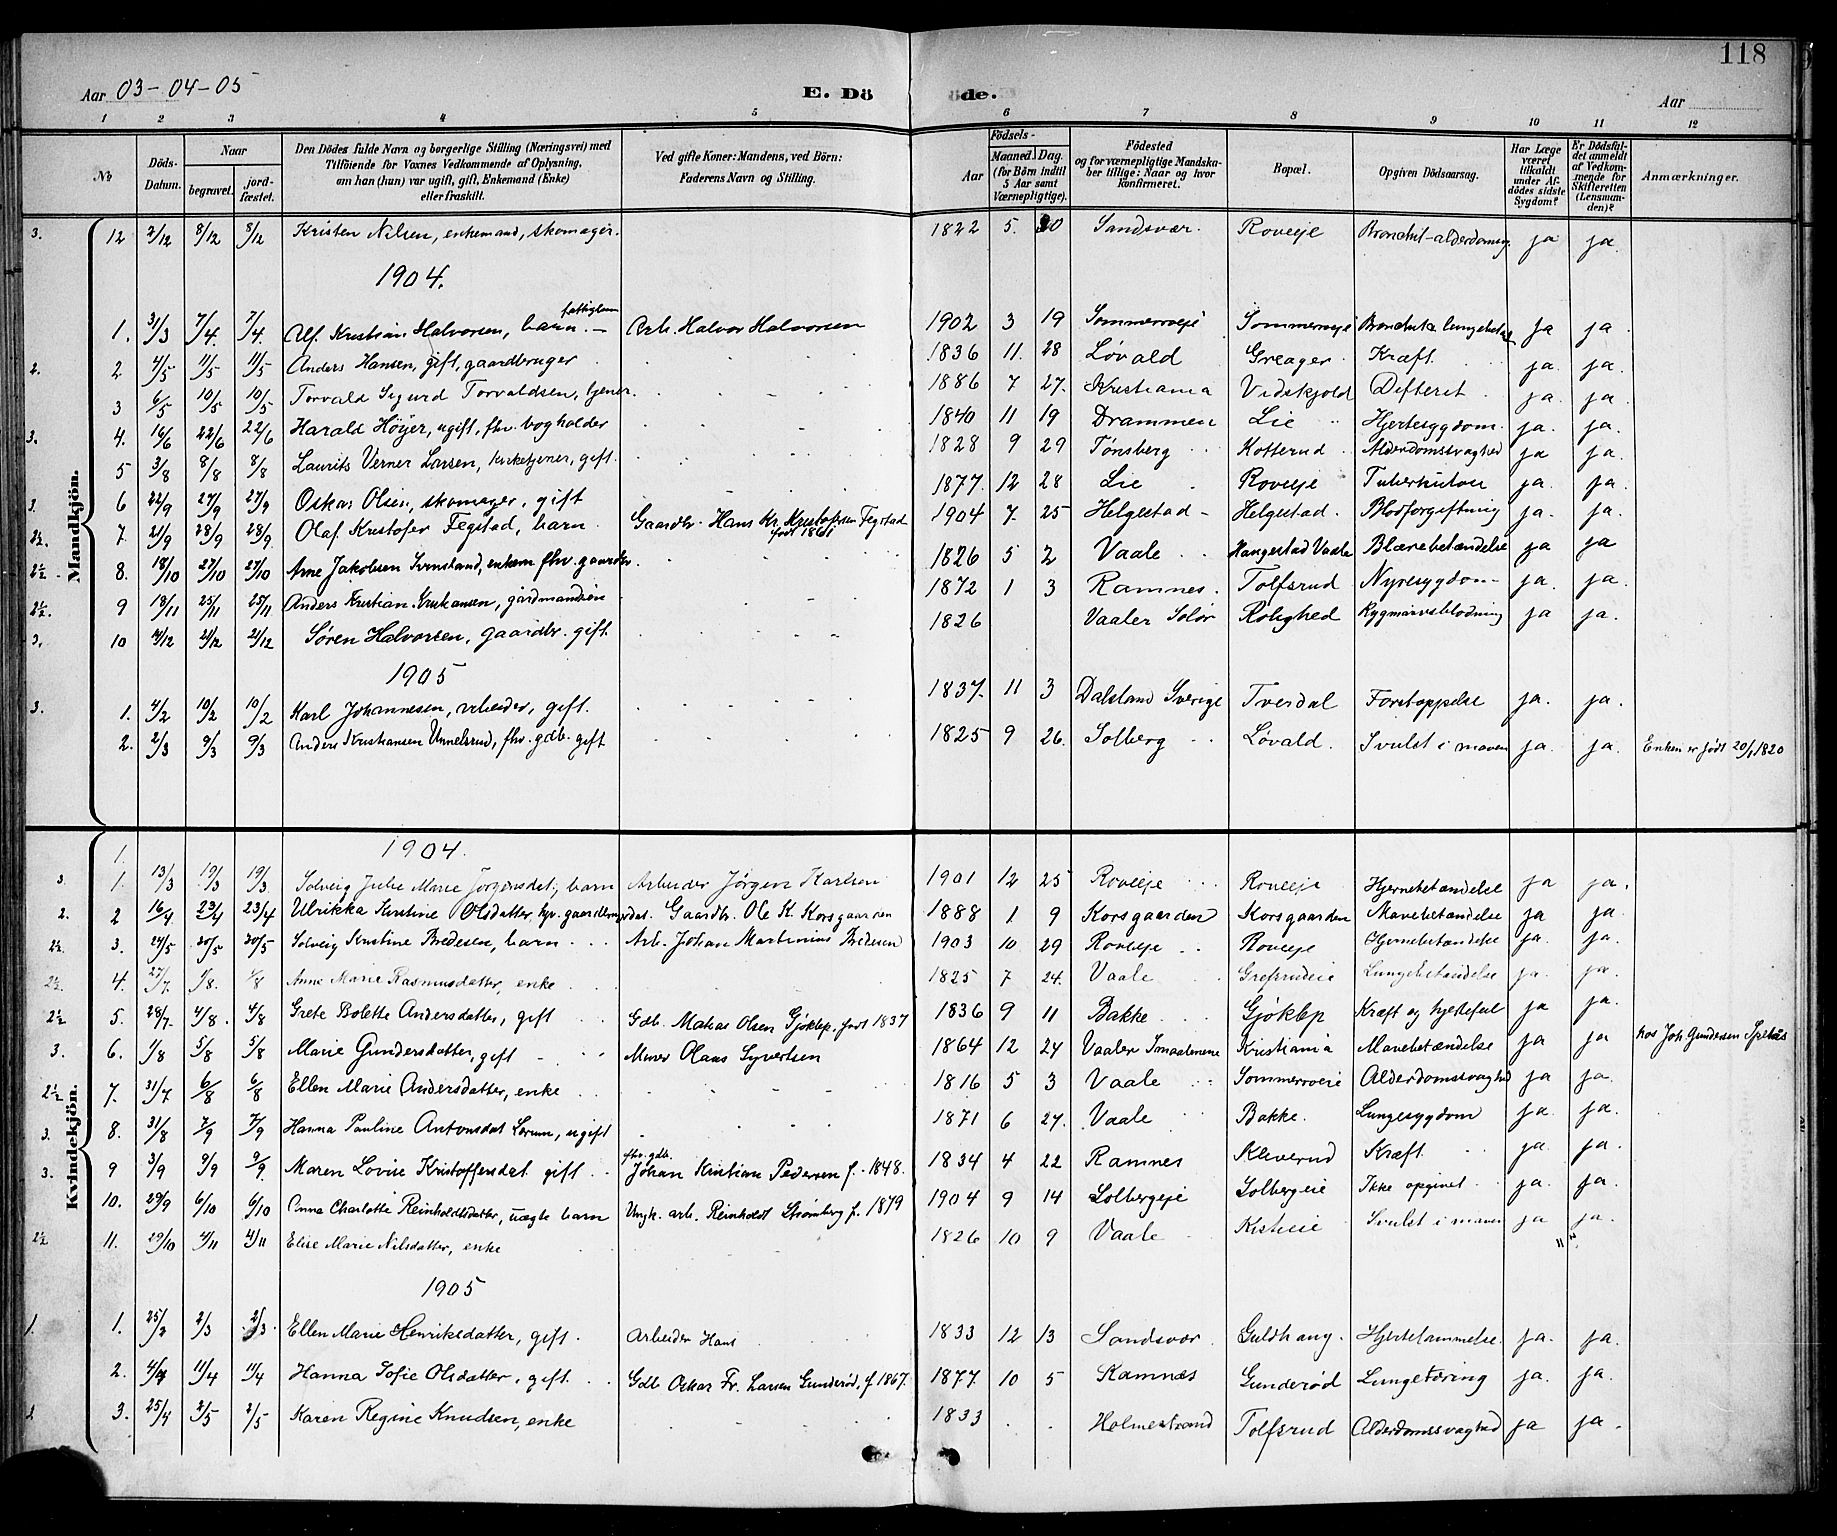 118
Aar 03-04-05 E. Döde. Aar
1 2 3 4 5 6 7 8 9 10 11 12
No Döds-Datum. Naar begravet. jordfæstet. Den Dödes fulde Navn og borgerlige Stilling (Næringsvei) med Tilföiende for Voxnes Vedkommende af Oplysning, om han (hun) var ugift, gift, Enkemand (Enke) eller fraskilt. Ved gifte Koner: Mandens, ved Börn: Faderens Navn og Stilling. Födsels- Aar Maaned. Dag. (for Börn indtil 5 Aar samt Værnepligtige). Födested og for værnepligtige Mandskaber tillige: Naar og hvor konfirmeret. Bopæl. Opgiven Dödsaarsag. Har Læge været tilkaldt under Afdödes sidste Sygdom? Er Dödsfaldet anmeldt af Vedkommende for Skifteretten (Lensmanden)? Anmærkninger.
Mandkjön.
3. 12 2/12 8/12 8/12 Kristen Nilsen, enkemand, skomager. 1822 5. 20 Sandsvær. Roveie Bronchit-alderdomsv. ja ja.
1904.
1. 31/3 7/4. 7/4. Alf Kristian Halvorsen, barn. fattiglem Arb. Halvor Halvorsen 1902 3 19 Sommerveje Sommerveje ja ja.
2. 2 4/5 11/5 11/5 Anders Hansen, gift, gaardbruger 1836 11. 28 Løvald Greager Kræft ja. ja.
3 6/5 10/5 10/5 Torvald Sigurd Torvaldsen, tjener. 1886 7 27. Kristiania Vidskjold Difterit ja. ja.
3. 4. 16/6 22/6 22/6 Harald Höyer, ugift, fhv. bogholder 1840 11 19 Drammen Lie Hjertesygdom. ja. ja.
5 3/8 8/8 8/8 Laurits Verner Larsen, kirketjener, gift. 1828 9 29 Tønsberg Kotterud Alderdomssvaghed ja ja.
3. 6 22/9 27/9 27/9 Oskar Olsen, skomager, gift 1877. 12 28 Lie Roveje Tuberkulose ja. ja.
2½. 7. 21/9 28/9 28/9. Olaf Kristofer Fegstad, barn. Gaardbr. Hans Kr. Kristofersen Fegstad født 1861 1904 7. 25 Helgestad Helgestad. Blodforgiftning ja. ja.
2½ 8. 18/10 27/10 27/10 Arne Jakobsen Svinsland, enkem. fhv. gaardbr. 1826 5 2 Vaale Hangestad Vaale Blærebetændelse ja ja
2½. 9 18/11 25/11 25/11 Anders Kristian, gårdmandssøn 1872 1 3 Ramnes. Tolfsrud Nyresygdom ja. ja.
3. 10 21/12 21/12 Søren Halvorsen, gaardbr. gift. 1826 Vaaler Solør Rolighed Rygmarvsblødning ja ja.
1905
3. 1. 4/2 10/2 10/2 Karl Johannesen, arbeider, gift. 1837. 11 3 Dalsland Sverige Tverdal Forstoppelse ja. ja.
2. 2/3 9/3 9/3 Anders Kristiansen Unnelsrud, fhv. gdb. gift 1825 9 26. Solberg Løvald. Svulst i maven ja. ja. Enken er født 20/1 1820
Kvindekjön.
1. 1904.
3. 1. 13/3 19/3 19/3. Solveig Julie Marie Jørgensdat., barn Arbeider Jørgen Karlsen 1901 12 25 Roveje Roveje Hjernebetændelse ja ja.
2. 2 16/4 23/4 23/4 Ulrikka Kristine Olsdatter, gaardbrugerdat. Gaardbr. Ole K. Korsgaarden 1888 1 9 Korsgaarden Korsgaarden Mavebetændelse ja ja.
2½. 3. 24/5 30/5 30/5 Solveig Kristine Bredesen, barn Arb. Johan Martinius Bredesen 1903 10 29 Roveje Roveje Hjernebetændelse ja. ja.
2½. 4. 27/7 1/8. 1/8 Anne Marie Rasmusdatter, enke 1825 7 24. Vaale Grefsrudeie Lungebetændelse ja. ja.
2½ 5. 28/7. 4/8. 4/8 Grete Bolette Andersdatter, gift Gdb. Matias Olsen Gjøklep, født 1837 1836 9 11 Bakke. Gjøklep Kræft og hjertefeil ja ja.
3. 6. 1/8 5/8 5/8 Marie Gundersdatter, gift Murer Olaus Syvertsen 1864 12 24 Vaaler Smaalenene Kristiania Mavebetændelse ja ja hos Joh Gundersen
2½ 7. 31/7 6/8 6/8 Ellen Marie Andersdatter, enke 1816 5 3 Vaale Sommerveie Alderdomssvaghed ja ja.
3. 8. 31/8 7/9 7/9 Hanna Pauline Antonsdat Sørum, ugift 1871 6 27. Vaale Bakke. Lungesygdom ja. ja.
3. 9 3/9 9/9 9/9. Maren Lovise Kristoffersdat gift. fhv. gdb. Johan Kristian Pedersen f. 1848. 1834 4 22 Ramnes Kleverud Kræft. ja. ja.
10. 29/9 6/10 6/10 Anna Charlotte Reinholdtsdatter, uægte barn Ungk. arb. Reinholdt Strømberg f. 1879 1904 9 14 Solbergeje Solbergeie Ikke opgivet ja. ja.
2½ 11. 29/10 4/11 4/11 Elise Marie Nilsdatter, enke 1826 10 9 Vaale Kisteeie Svulst i maven ja ja.
1905
1. 1. 25/2 2/3 2/3. Ellen Marie Henriksdatter, gift. Arbeider Hans 1833 12 13 Sandsvær Guldhaug. Hjertelammelse. ja. ja.
2. 4/4 11/4 11/4 Hanna Sofie Olsdatter, gift. Gdb Oskar Fr. Larsen Gunderød, f 1867. 1877. 10 5 Ramnæs Gunderød Lungetæring ja. ja.
2 3. 25/4 2/5 2/5 Karen Regine Knudsen, enke 1833 Holmestrand Tolfsrud Alderdomssvaghed ja ja.